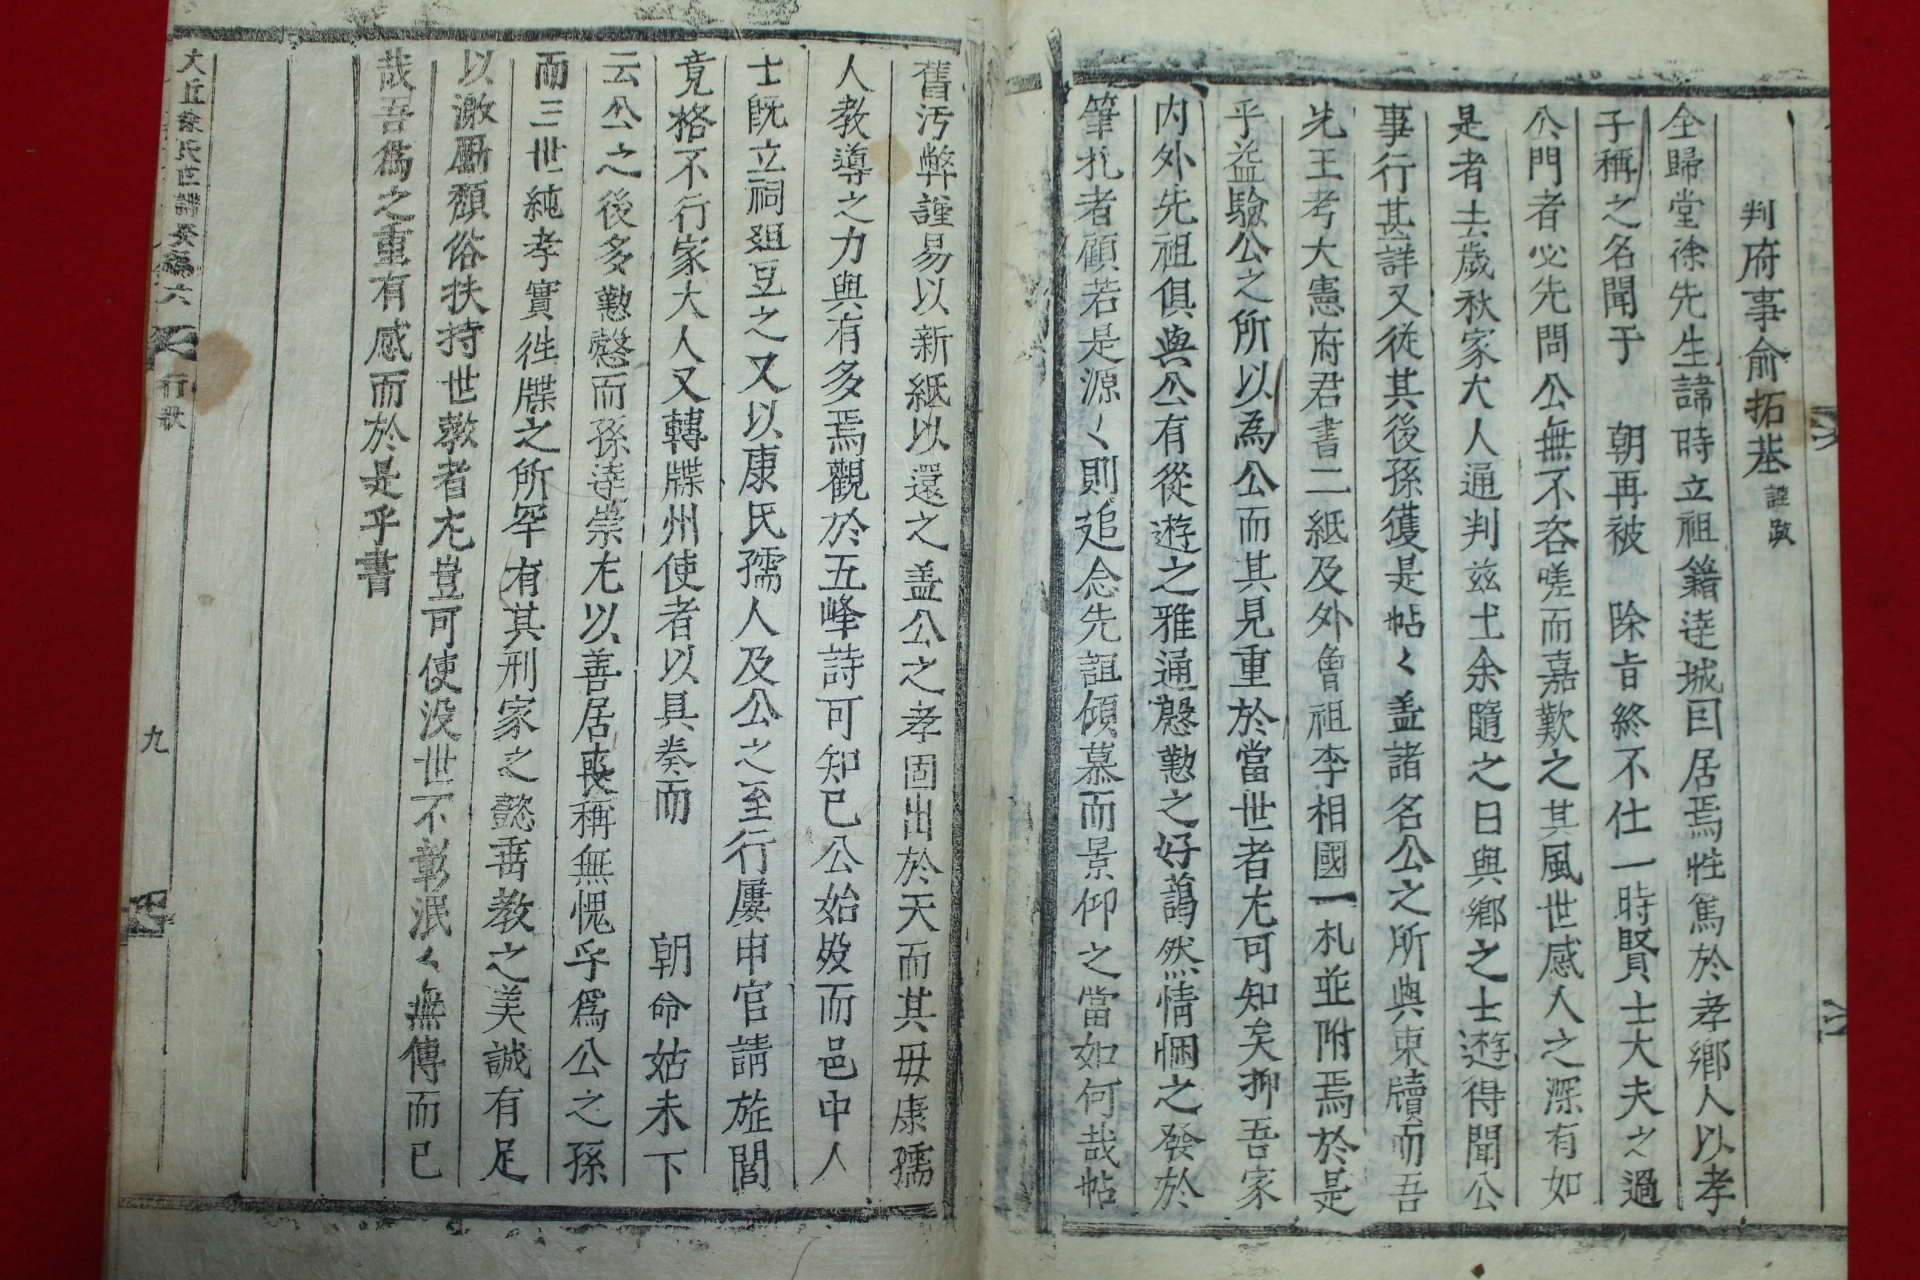 判府事俞拓基謹跋
全歸堂徐先生諱時立祖籍達城曰居焉性篤於孝鄉人以孝
子稱之名聞于　朝再被　除旨終不仕一時賢士大夫之過
公門者必先問公無不咨嗟而嘉歎之其風世感人之深有如
是者去歲秋家大人通判茲土余隨之日與鄉之士遊得聞公
事行甚詳又從其後孫獲是帖〻盖諸名公之所與柬牘而吾
先王考大憲府君書二紙及外曾祖李相國一札並附焉於是
乎益驗公之所以為公而其見重於當世者尤可知矣抑吾家
內外先祖俱與公有從遊之雅通慇懃之好藹然情悃之發於
筆札者顧若是源〻則追念先誼傾慕而景仰之當如何哉帖
舊汚弊謹易以新紙以還之盖公之孝固出於天而其毋康孺
人教導之力與有多焉觀於五峰詩可知已公始歿而邑中人
士旣立祠俎豆之又以康氏孺人及公之至行屢申官請㫌閭
竟格不行家大人又轉牒州使者以具奏而　朝命姑未下
云公之後多懃慤而孫逹崇尤以善居喪稱無愧乎爲公之孫
而三世純孝實徃牒之所罕有其刑家之懿垂教之美誠有足
以激勵頹俗扶持世教者尤豈可使没世不彰泯〻無傳而已
哉吾爲之重有感而於是乎書
大丘徐氏世譜癸編六
行狀
九